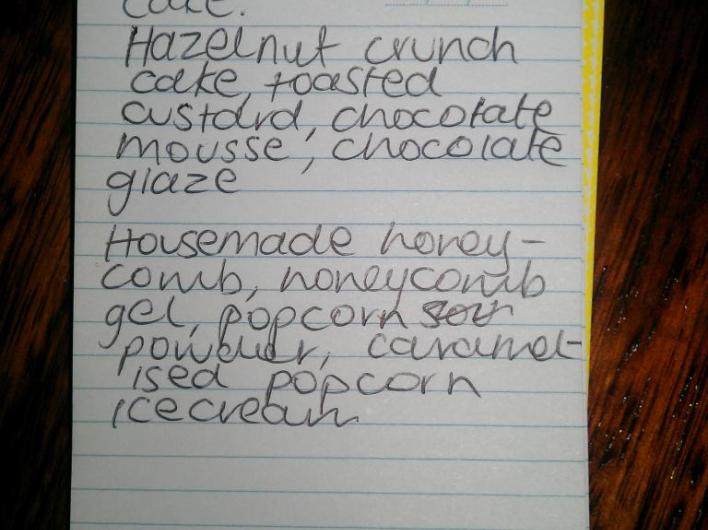 cake.
Hazelnut crunch
cake, toasted
custard, chocolate
mousse, chocolate
glaze
Housemade honey-
comb, honeycomb
gel, popcorn
powder, caramel-
ised popcorn
icecream